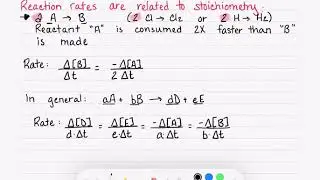 Reaction rates are related to stoichiometry:
→ 2 A → B (2 Cl → Cl₂ or 2 H → H₂)
Reactant "A" is consumed 2X faster than "B"
is made
Rate: Δ[B]/Δt = -Δ[A]/2 Δt
In general: aA + bB → dD + eE
Rate: Δ[D]/d·Δt = Δ[E]/e·Δt = -Δ[A]/a·Δt = -Δ[B]/b·Δt